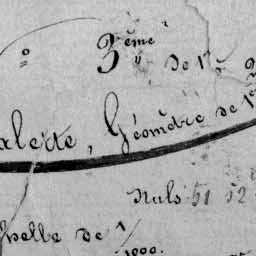 3ème de 1re
alerte, Géomètre de 1re
Nuls 51 52
helle de 1/1000.